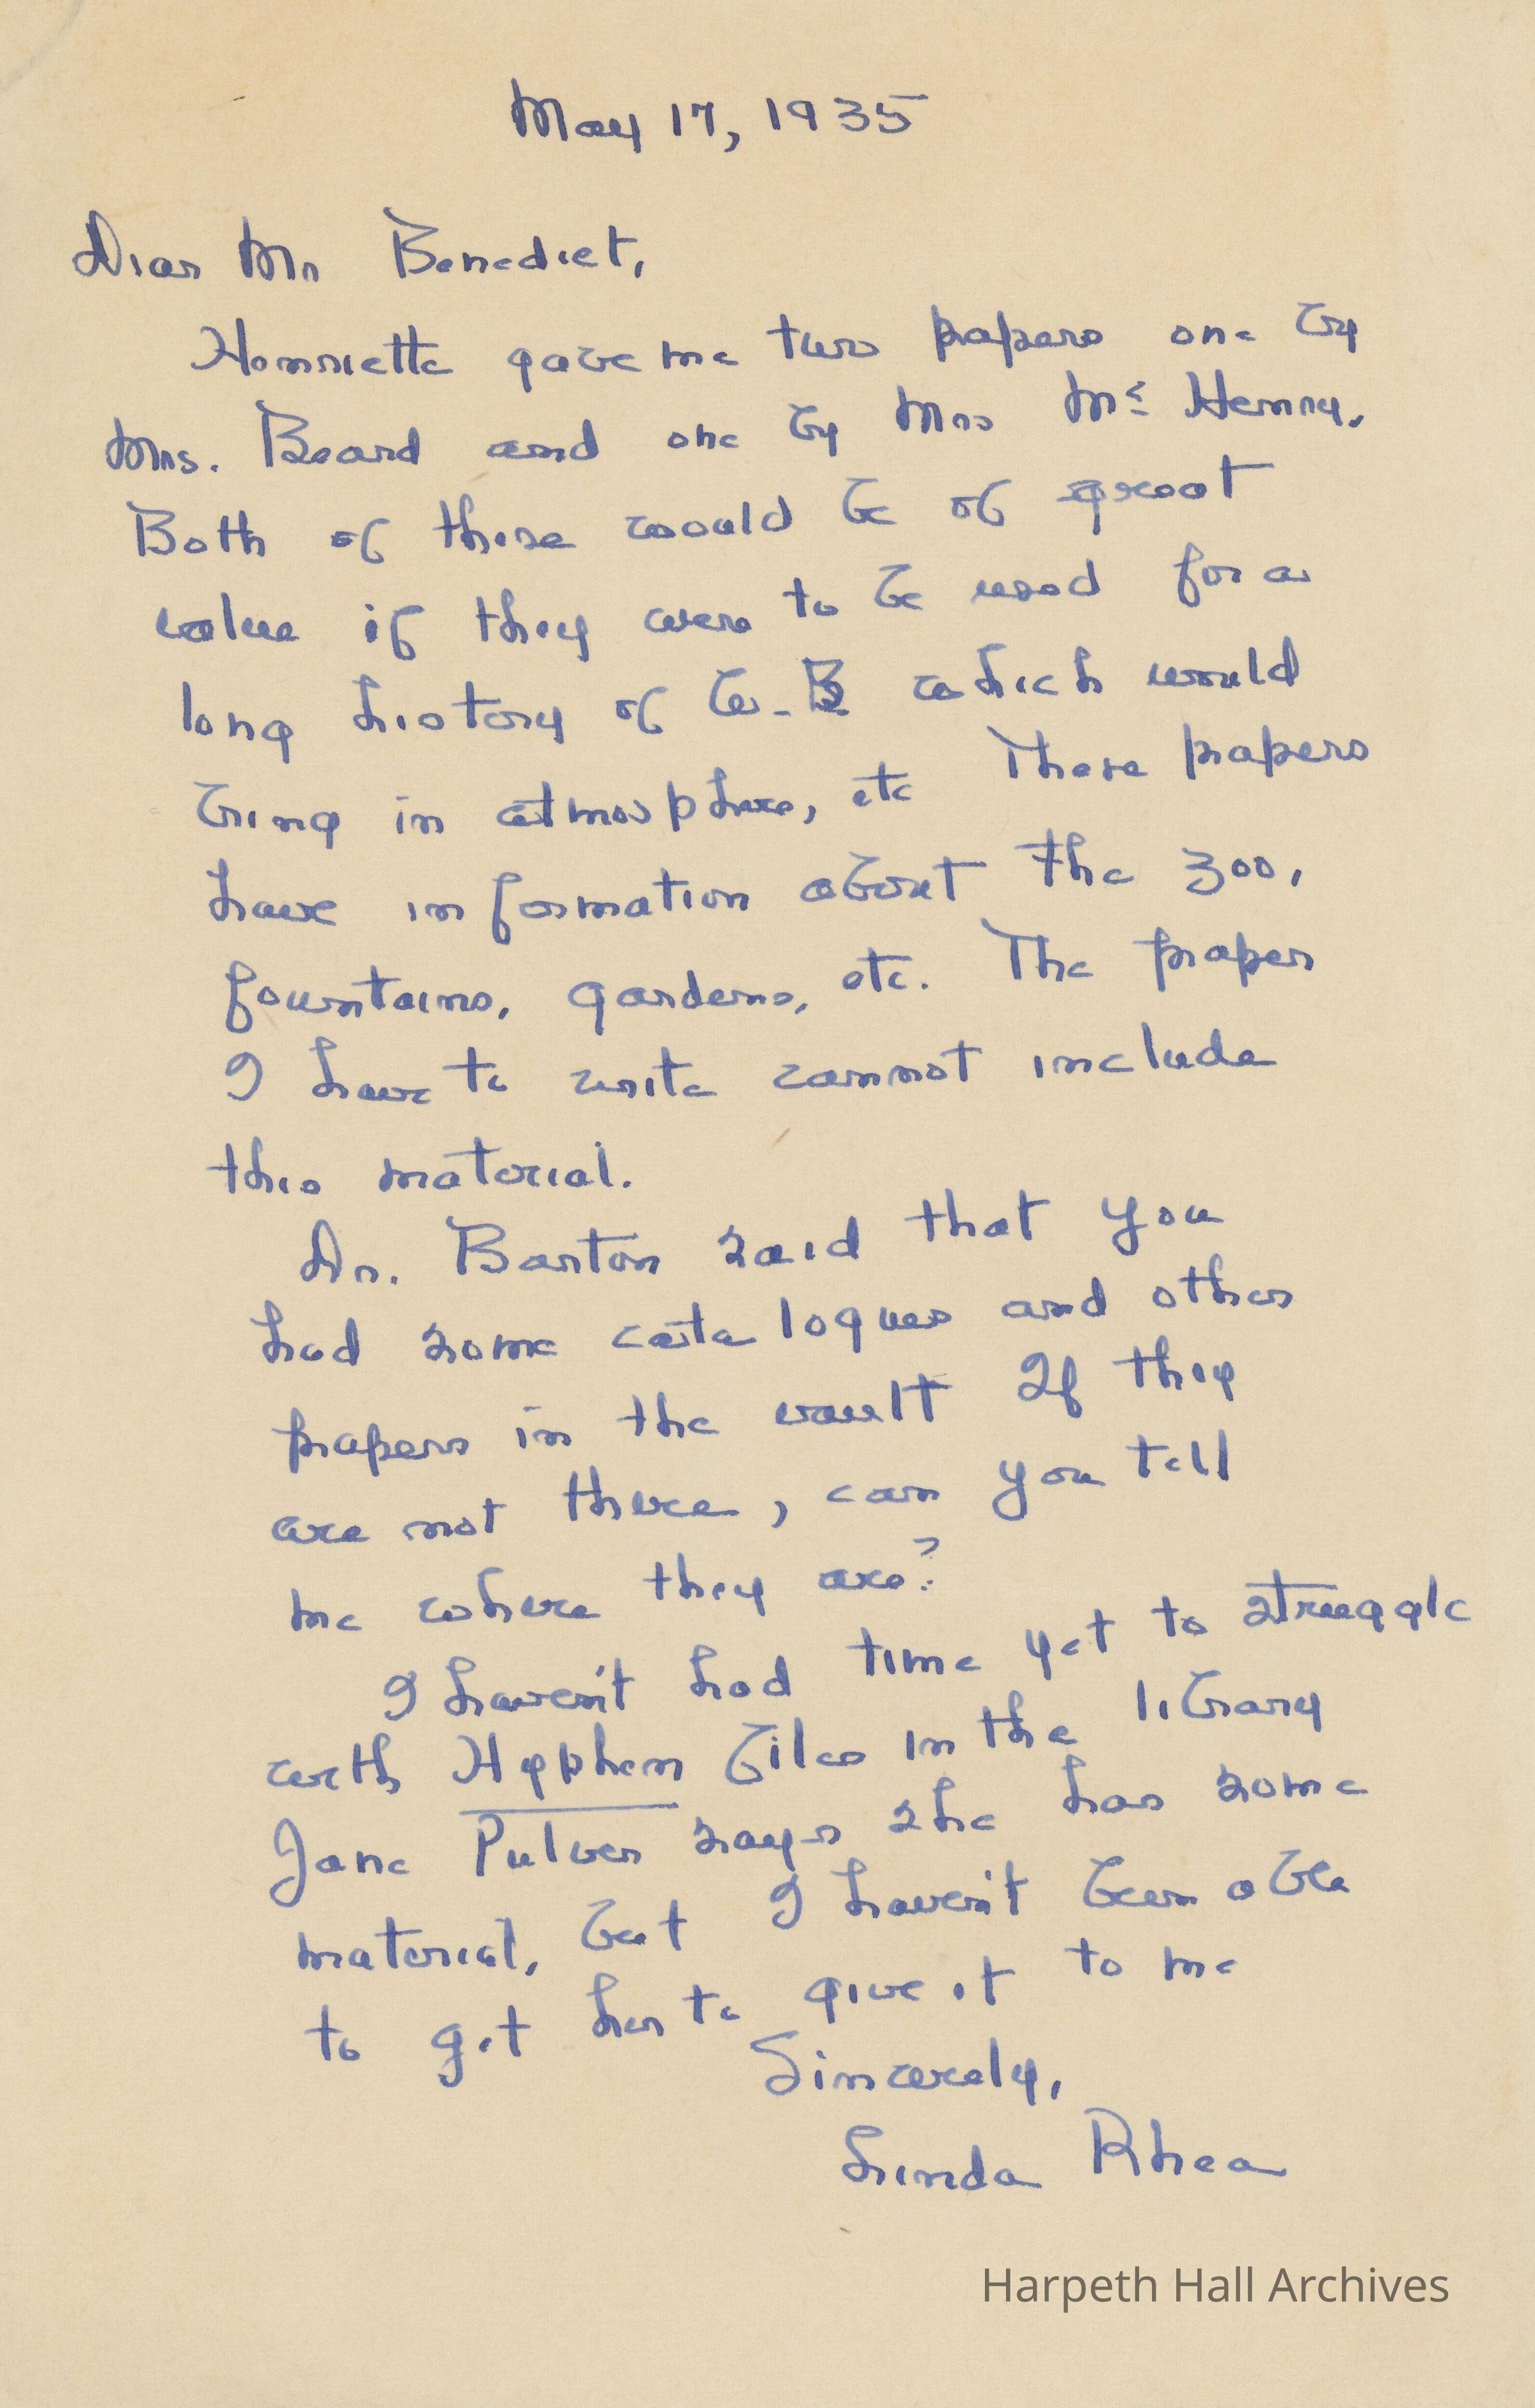 May 17, 1935
Dear Mr Benedict,
Henrietta gave me two papers one by
Mrs. Beard and one by Mrs Mc Henry.
Both of these would be of great
value if they were to be used for a
long history of W-B which would
bring in atmosphere, etc These papers
have information about the 300,
fountains, gardens, etc. The paper
I have to write cannot include
this material.
Dr. Barton said that you
had some catalogues and other
papers in the vault If they
are not there, can you tell
me where they are?
I haven't had time yet to struggle
with Hyphen files in the library
Jane Pulver says she has some
material, but I haven't been able
to get her to give it to me
Sincerely,
Linda Rhea
Harpeth Hall Archives